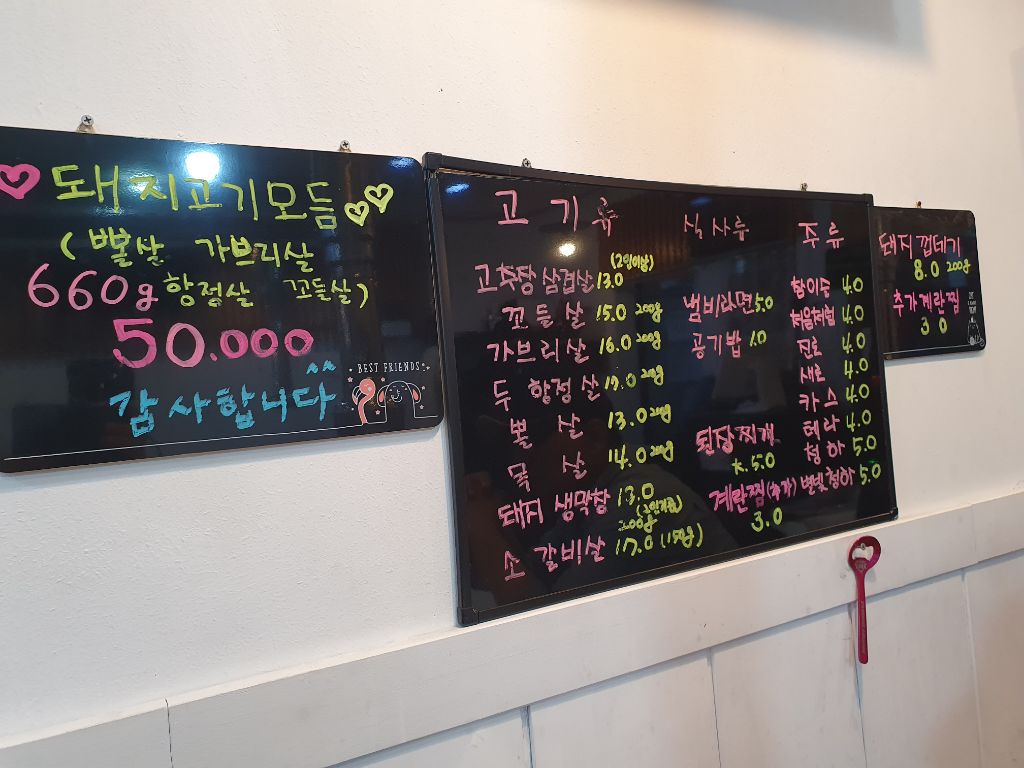 돼지고기모듬
(뽈살 가브리살
660g 항정살 꼬들살)
50.000
감사합니다 ^^
BEST FRIENDS
고기류
고추장 삼겹살 13.0 (2인이상)
꼬들살 15.0 200g
가브리살 16.0 200g
두항정살 17.0 200g
뽈살 13.0 200g
목살 14.0 200g
돼지 생막창 13.0
200g
소갈비살 17.0 (150g)
식사류
냄비라면 5.0
공기밥 1.0
된장찌개
5.0
계란찜 (추가)
3.0
주류
참이슬 4.0
처음처럼 4.0
진로 4.0
새로 4.0
카스 4.0
테라 4.0
청하 5.0
별빛청하 5.0
돼지껍데기
8.0 200g
추가계란찜
3 0